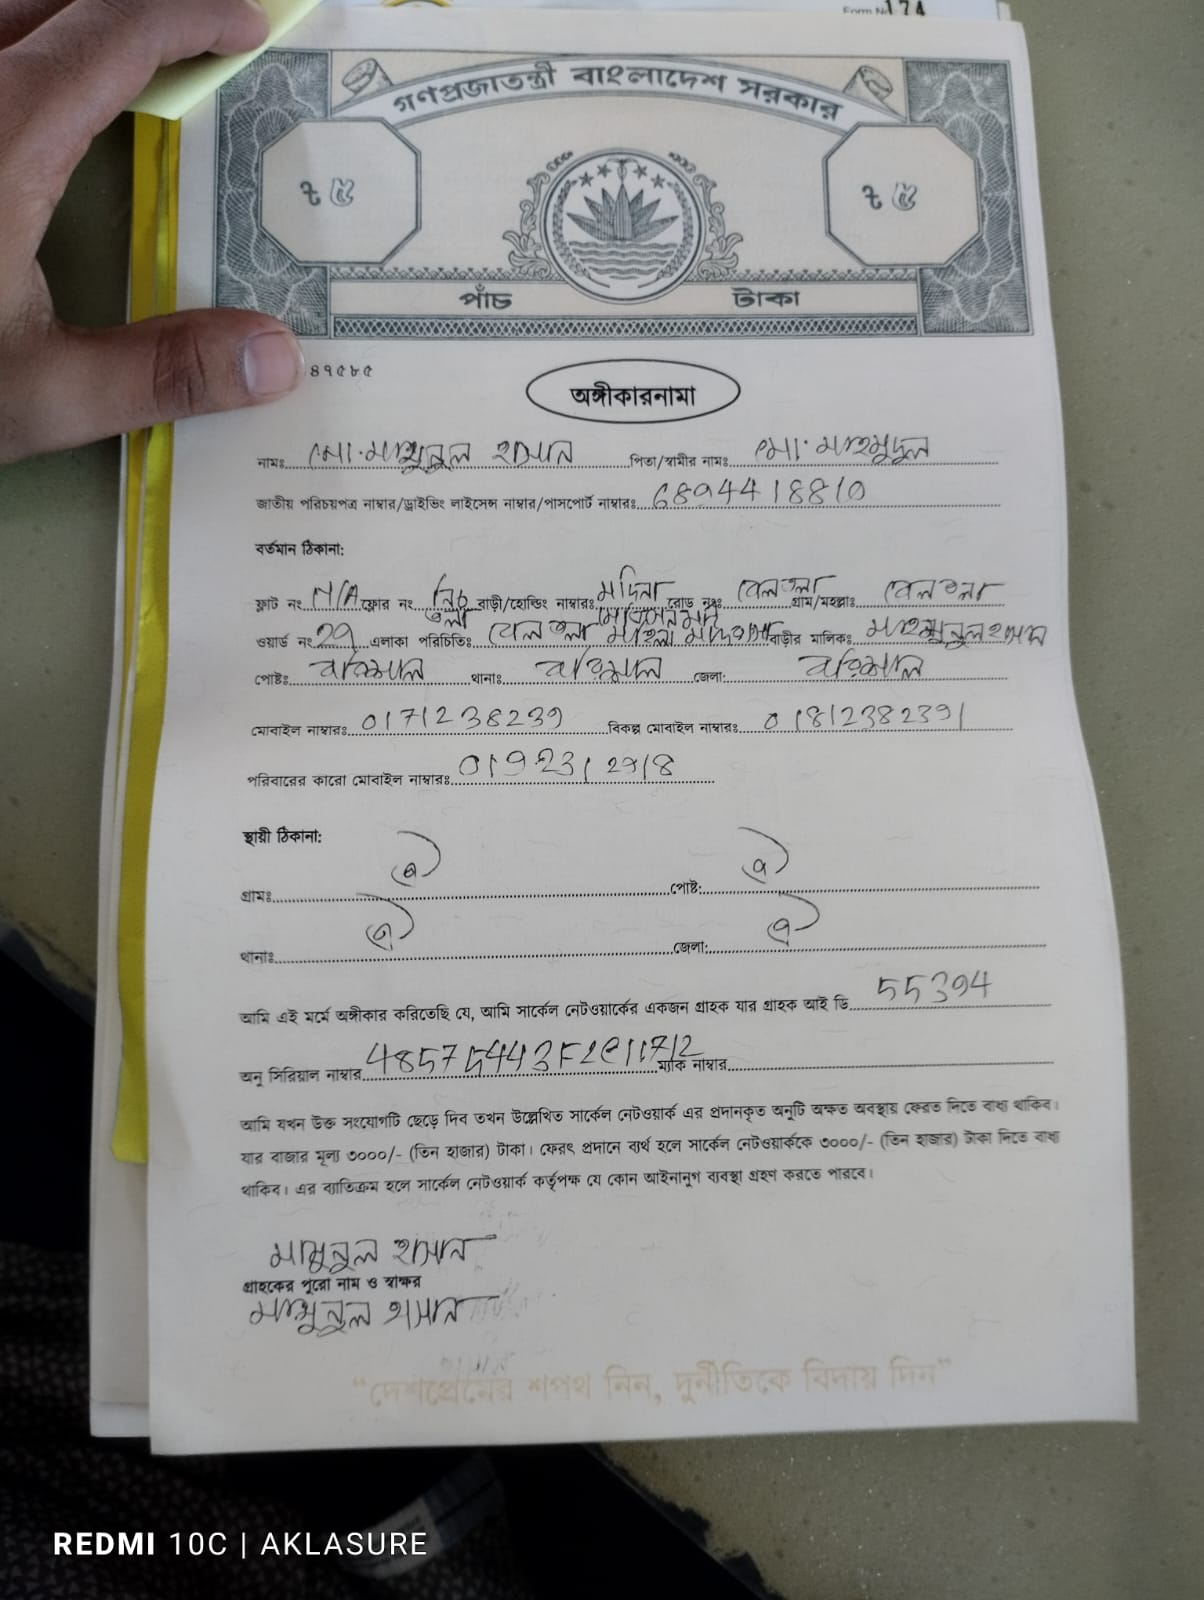 Form N 174
গণপ্রজাতন্ত্রী বাংলাদেশ সরকার
৳ ৫ ৳ ৫
পাঁচ টাকা
৪৭৫৮৫
অঙ্গীকারনামা
নামঃ মো. মামুনুল হাসান পিতা/স্বামীর নামঃ মো. মাহমুদুল
জাতীয় পরিচয়পত্র নাম্বার/ড্রাইভিং লাইসেন্স নাম্বার/পাসপোর্ট নাম্বারঃ 6894418810
বর্তমান ঠিকানা:
ফ্লাট নং N/A ফ্লোর নং নিচ তলা বাড়ী/হোল্ডিং নাম্বারঃ মদিনা রোড নংঃ বেলতলা গ্রাম/মহল্লাঃ বেলতলা
ওয়ার্ড নং 29 এলাকা পরিচিতিঃ বেলতলা মহিলা মাদ্রাসা বাড়ীর মালিকঃ
পোষ্টঃ বরিশাল থানাঃ বরিশাল জেলা: বরিশাল
মোবাইল নাম্বারঃ 0171238239 বিকল্প মোবাইল নাম্বারঃ 01812382391
পরিবারের কারো মোবাইল নাম্বারঃ 0192312918
স্থায়ী ঠিকানা:
গ্রামঃ ঐ পোষ্ট: ঐ
থানাঃ ঐ জেলা: ঐ
আমি এই মর্মে অঙ্গীকার করিতেছি যে, আমি সার্কেল নেটওয়ার্কের একজন গ্রাহক যার গ্রাহক আই ডি 55394
অনু সিরিয়াল নাম্বার ম্যাক নাম্বার
আমি যখন উক্ত সংযোগটি ছেড়ে দিব তখন উল্লেখিত সার্কেল নেটওয়ার্ক এর প্রদানকৃত অনুটি অক্ষত অবস্থায় ফেরত দিতে বাধ্য থাকিব।
যার বাজার মূল্য ৩০০০/- (তিন হাজার) টাকা। ফেরৎ প্রদানে ব্যর্থ হলে সার্কেল নেটওয়ার্ককে ৩০০০/- (তিন হাজার) টাকা দিতে বাধ্য
থাকিব। এর ব্যাতিক্রম হলে সার্কেল নেটওয়ার্ক কর্তৃপক্ষ যে কোন আইনানুগ ব্যবস্থা গ্রহণ করতে পারবে।
মামুনুল হাসান
গ্রাহকের পুরো নাম ও স্বাক্ষর
মামুনুল হাসান
“দেশপ্রেমের শপথ নিন, দুর্নীতিকে বিদায় দিন”
REDMI 10C | AKLASURE